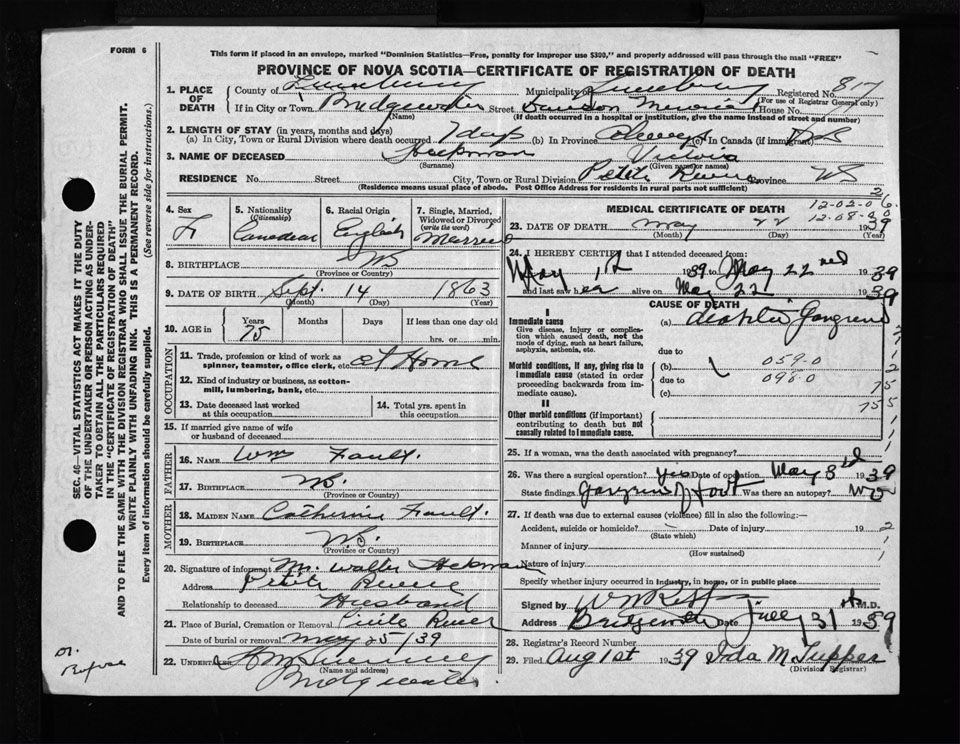 FORM 6
This form if placed in an envelope, marked "Dominion Statistics—Free, penalty for improper use $300," and properly addressed will pass through the mail "FREE"
PROVINCE OF NOVA SCOTIA—CERTIFICATE OF REGISTRATION OF DEATH
1. PLACE OF DEATH County of Lunenburg Municipality of Lunenburg Registered No. 817
(For use of Registrar General only)
If in City or Town Bridgewater Street Dawson Memorial House No.
(Name) (If death occurred in a hospital or institution, give the name instead of street and number)
2. LENGTH OF STAY (in years, months and days)
(a) In City, Town or Rural Division where death occurred 7 days (b) In Province Always (c) In Canada (if immigrant)
3. NAME OF DECEASED Heckman
(Surname) (Given name or names)
RESIDENCE No. Street City, Town or Rural Division Petite Riviere Province NS
(Residence means usual place of abode. Post Office Address for residents in rural parts not sufficient)
4. Sex F
5. Nationality (Citizenship) Canadian
6. Racial Origin English
7. Single, Married, Widowed or Divorced (write the word) Married
8. BIRTHPLACE NS
(Province or Country)
9. DATE OF BIRTH Sept. 14 1863
(Month) (Day) (Year)
10. AGE in Years Months Days If less than one day old
75 hrs. or min.
OCCUPATION
11. Trade, profession or kind of work as spinner, teamster, office clerk, etc. At Home
12. Kind of industry or business, as cotton-mill, lumbering, bank, etc.
13. Date deceased last worked at this occupation
14. Total yrs. spent in this occupation
15. If married give name of wife or husband of deceased
FATHER
16. NAME Wm Fault
17. BIRTHPLACE NS.
(Province or Country)
MOTHER
18. MAIDEN NAME Catherine Fault.
19. BIRTHPLACE N.S.
(Province or Country)
20. Signature of informant Mr. Walter Heckman
Address Petite Riviere
Relationship to deceased Husband
21. Place of Burial, Cremation or Removal Petite River
Date of burial or removal May 25/39
22. UNDERTAKER
(Name and address)
Bridgewater
MEDICAL CERTIFICATE OF DEATH
12-02-0
12-08-
23. DATE OF DEATH May 22 1939
(Month) (Day) (Year)
24. I HEREBY CERTIFY that I attended deceased from:
May 1st 1939 to May 22nd 1939
and last saw her alive on May 22 1939
CAUSE OF DEATH
I
Immediate cause
Give disease, injury or complication which caused death, not the mode of dying, such as heart failure, asphyxia, asthenia, etc.
(a) diabetic Gangrene
due to
Morbid conditions, if any, giving rise to immediate cause (stated in order proceeding backwards from immediate cause).
(b) 059-0
due to 098-0
(c)
II
Other morbid conditions (if important) contributing to death but not causally related to immediate cause.
25. If a woman, was the death associated with pregnancy?
26. Was there a surgical operation? yes Date of operation May 3rd 1939
State findings Gangrene of foot Was there an autopsy? No
27. If death was due to external causes (violence) fill in also the following:—
Accident, suicide or homicide? Date of injury 19
(State which)
Manner of injury
(How sustained)
Nature of injury
Specify whether injury occurred in industry, in home, or in public place
Signed by M.D.
Address Bridgewater Date 1939
28. Registrar's Record Number
29. Filed Aug 1st 1939 Ida M Tupper
(Division Registrar)
SEC. 46—VITAL STATISTICS ACT MAKES IT THE DUTY
OF THE UNDERTAKER OR PERSON ACTING AS UNDER-
TAKER TO OBTAIN ALL THE PARTICULARS REQUIRED
IN THE "CERTIFICATE OF REGISTRATION OF DEATH"
AND TO FILE THE SAME WITH THE DIVISION REGISTRAR WHO SHALL ISSUE THE BURIAL PERMIT.
WRITE PLAINLY WITH UNFADING INK. THIS IS A PERMANENT RECORD.
Every item of information should be carefully supplied. (See reverse side for instructions.)